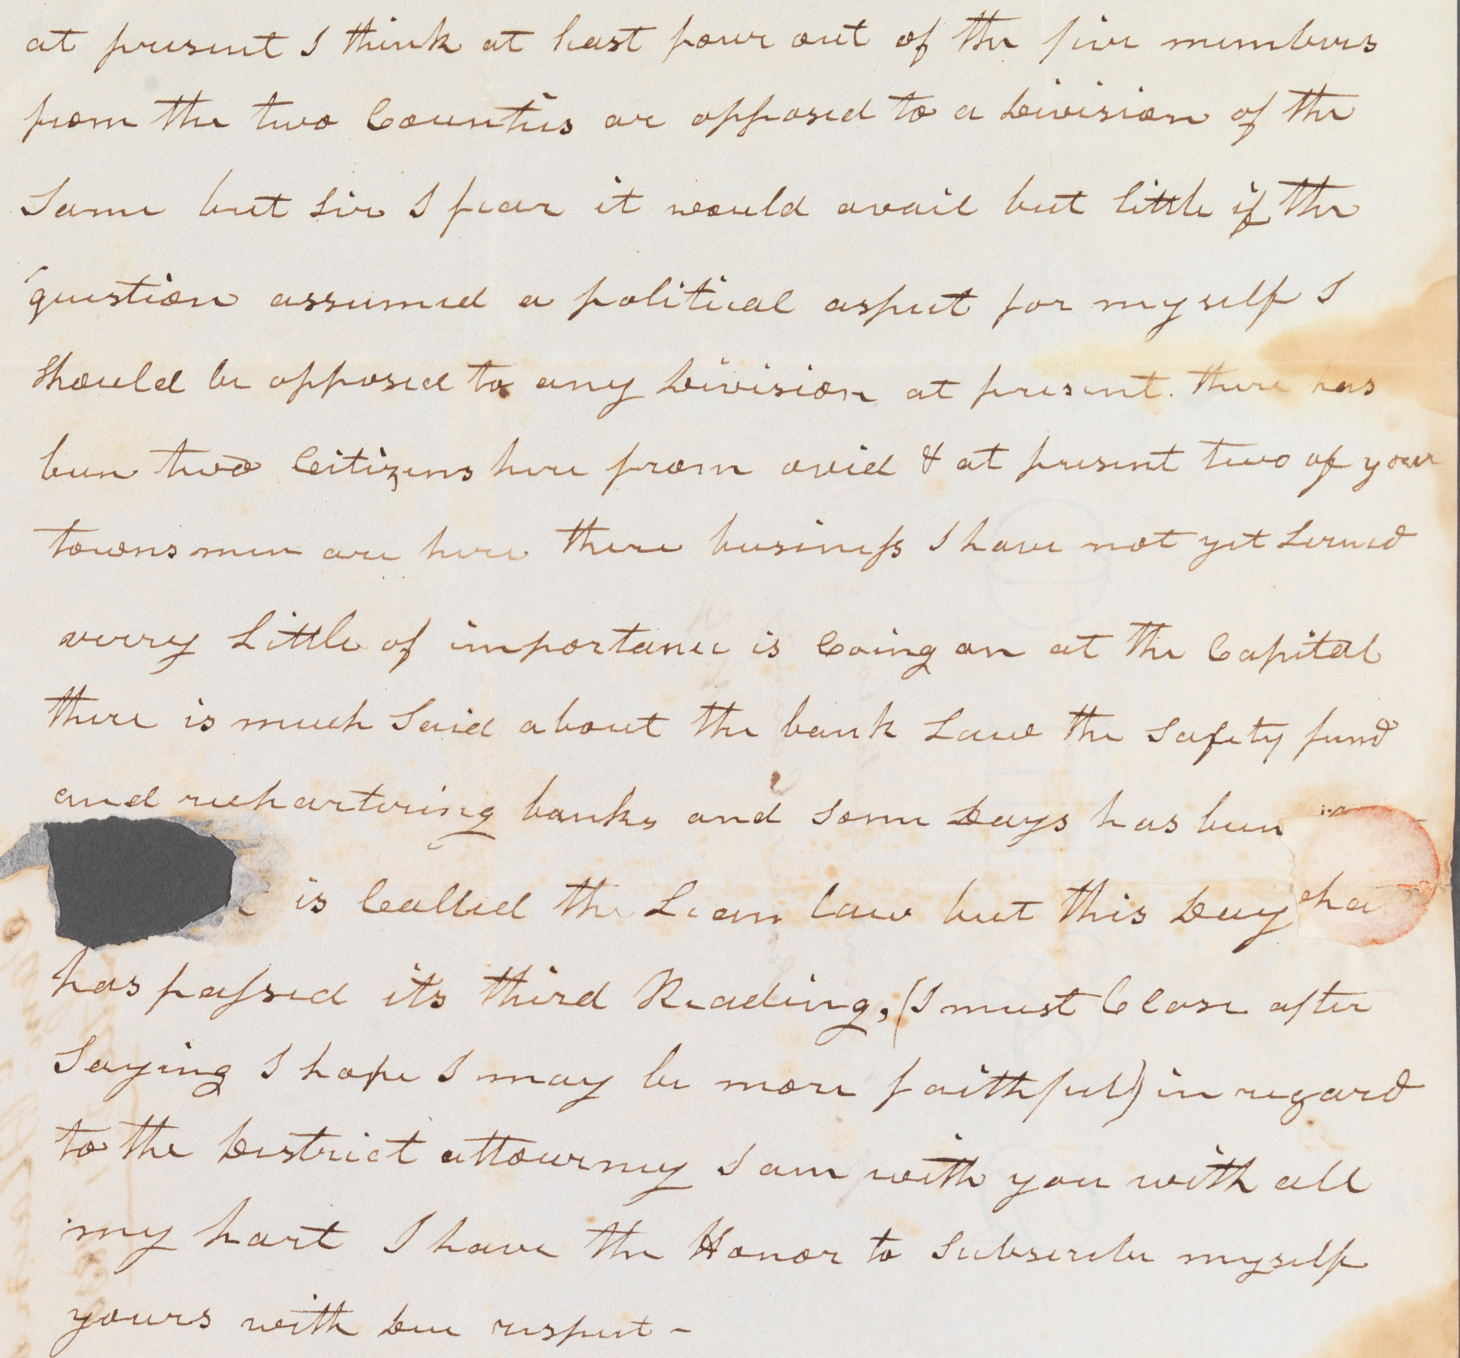 at present I think at least four out of the five members
from the two Counties are opposed to a Division of the
Same but Sir I fear it would avail but little if the
question assumed a political aspect for my self I
Should be opposed to any Division at present. there has
been two Citizens here from ovid & at present two of your
townsmen are here there business I have not yet Lerned
verry Little of importance is Going on at the Capital
there is much Said about the bank Law the Safety fund
and rechartering banks and some Days has been
is Called the Loan law but this Day
has passed its third Reading, (I must Close after
Saying I hope I may be more faithful) in regard
to the District attourney I am with you with all
my hart I have the Honor to Subscribe myself
yours with Due respect -